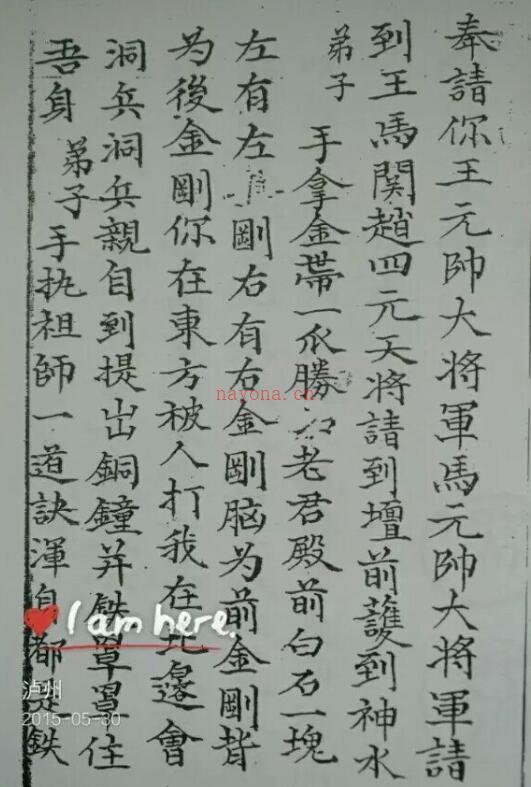 奉請你王元帥大将軍馬元帥大将軍請
到王馬関趙四元天將請到壇前護到神水
弟子 手拿金帶一 勝 老君殿前白石一塊
左有左 剛右有右金剛脑为前金剛背
为後金剛你在東方被人打我在 邊會
洞兵洞兵親自到提出銅鐘并鉄罩罩住
吾身 弟子手执祖師一道訣渾身都 鉄
nayona.cn
I am here.
泸州
2015-05-30